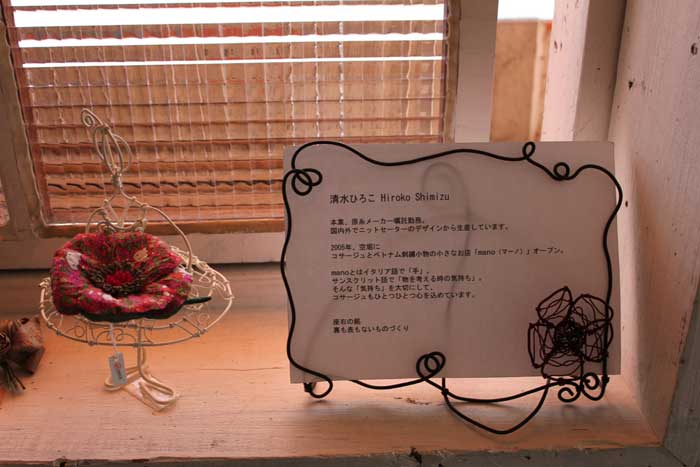 清水ひろこ Hiroko Shimizu
本業、原糸メーカー嘱託勤務。
国内外でニットセーターのデザインから生産しています。
2005年、空堀に
コサージュとベトナム刺繍小物の小さなお店「mano（マーノ）」オープン。
manoとはイタリア語で「手」。
サンスクリット語で「物を考える時の気持ち」。
そんな「気持ち」を大切にして、
コサージュもひとつひとつ心を込めています。
座右の銘
裏も表もないものづくり